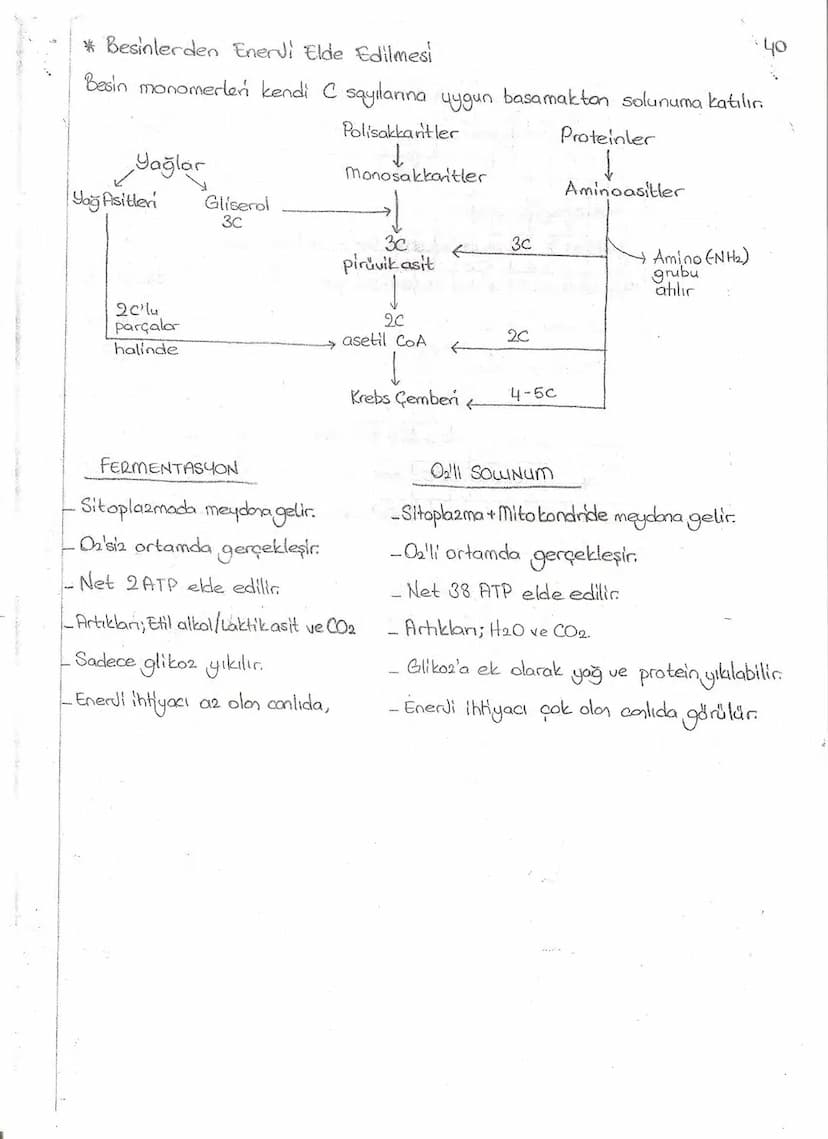 40
* Besinlerden Enerji Elde Edilmesi
Besin monomerleri kendi C sayılarına uygun basamaktan solunuma katılır.
Polisakkaritler
Proteinler
Yağlar
Monosakkaritler
Aminoasitler
Yağ Asitleri
Gliserol
3C
3C
pirüvik asit
3C
Amino (-NH2)
grubu
atılır
2C'lu
parçalar
halinde
2C
asetil CoA
2C
Krebs Çemberi
4-5C
FERMENTASYON
- Sitoplazmada meydana gelir.
- O2'siz ortamda gerçekleşir.
- Net 2 ATP elde edilir.
- Artıkları; Etil alkol/Laktik asit ve CO2
- Sadece glikoz yıkılır.
- Enerji ihtiyacı az olan canlıda,
O2'li SOLUNUM
- Sitoplazma + Mitokondride meydana gelir.
- O2'li ortamda gerçekleşir.
- Net 38 ATP elde edilir.
- Artıkları; H2O ve CO2.
- Glikoz'a ek olarak yağ ve protein yıkılabilir.
- Enerji ihtiyacı çok olan canlıda görülür.